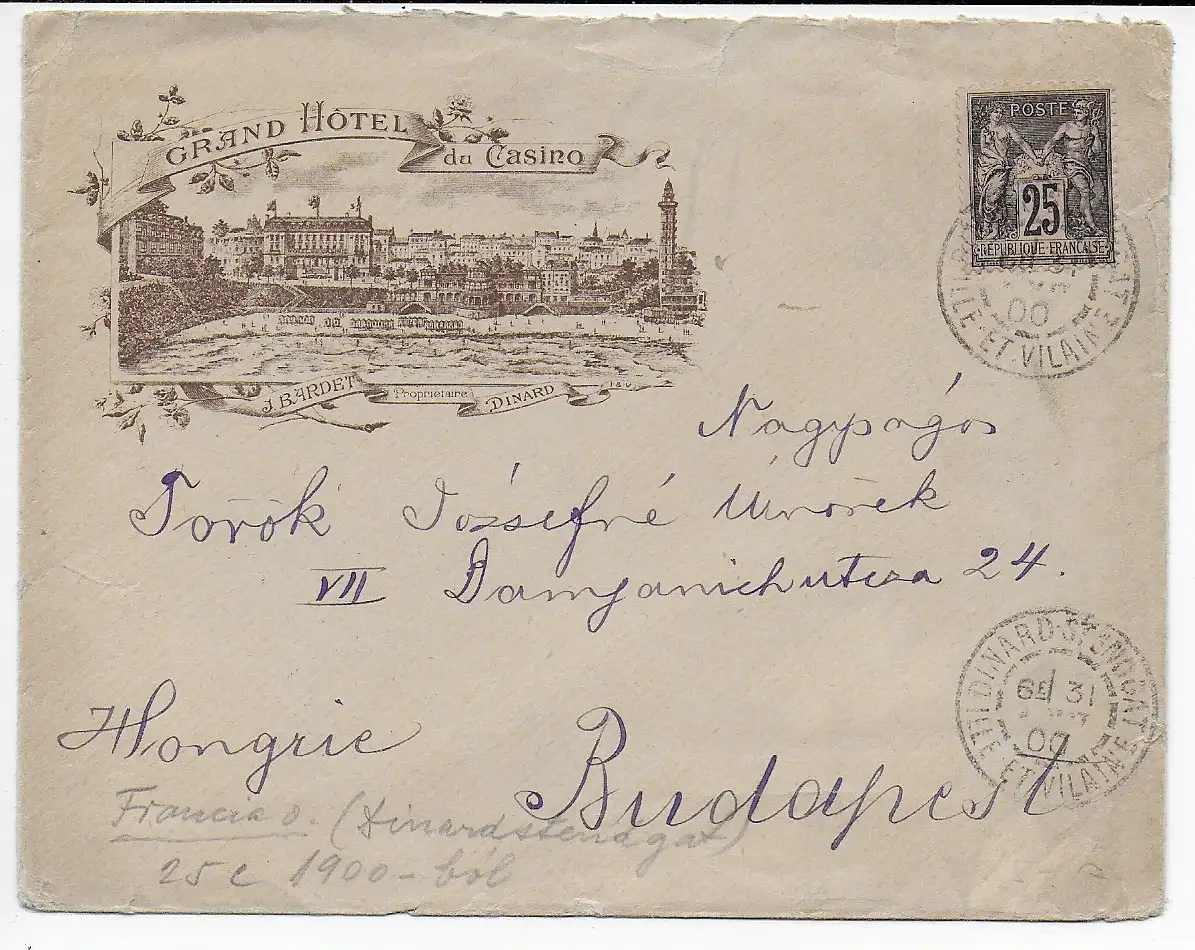 GRAND HÔTEL
du Casino
J. BARDET Propriétaire DINARD
POSTE
25
RÉPUBLIQUE FRANÇAISE
00
ILLE ET VILAINE
Nagyságos
Török Józsefné Úrnőnek
VII Damjanich utcza 24.
DINARD-ST ENOGAT
6E 31
00
ILLE ET VILAINE
Hongrie
Budapest
Francia o. (Dinardstenagat)
25 c 1900-ból